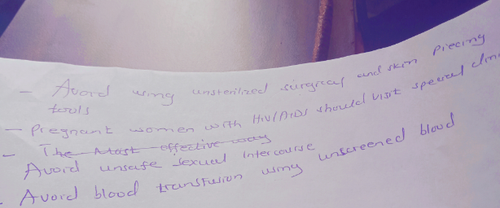 - Avoid using unsterilized surgical and skin piecing
tools
- Pregnant women with HIV/AIDS should visit special clinic
- The Most effective way
Avoid unsafe sexual intercourse
. Avoid blood transfusion using unscreened blood